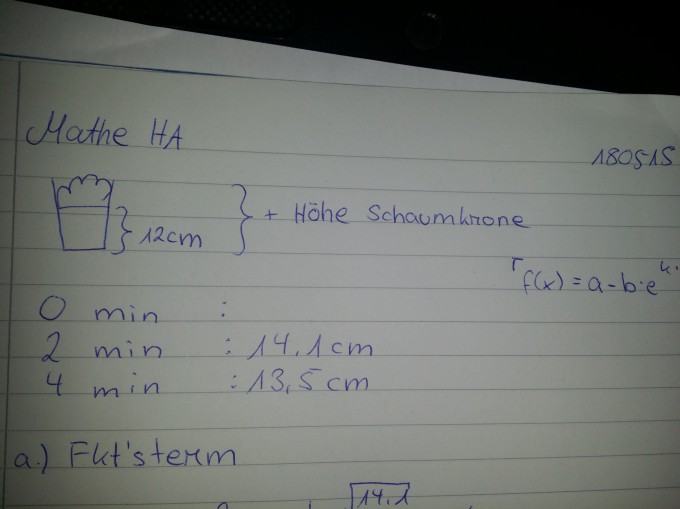 Mathe HA
180515
12cm } + Höhe Schaumkrone
f(x) = a - b·e^k·
0 min :
2 min : 14,1cm
4 min : 13,5cm
a.) Fkt'sterm
14.1